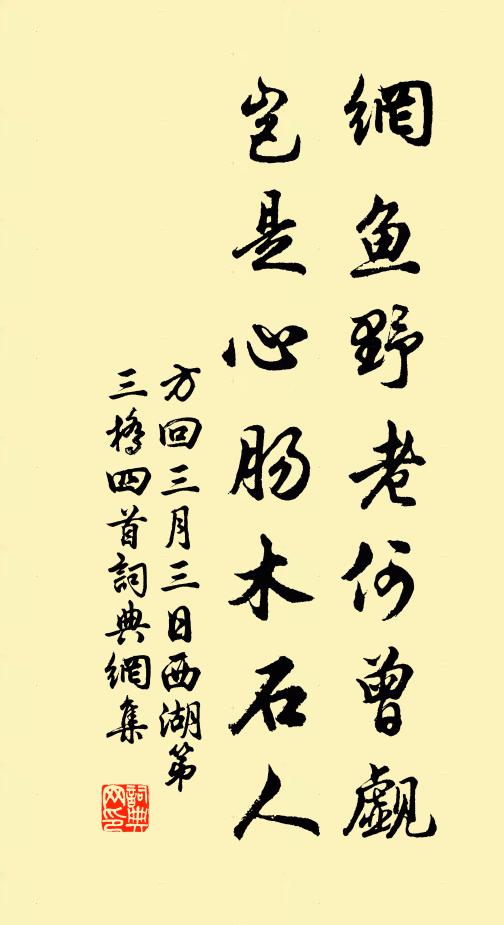 網魚野老何曾覰
豈是心肠木石人
方回三月三日西湖第
三橋四首詞典網集
詞典網印